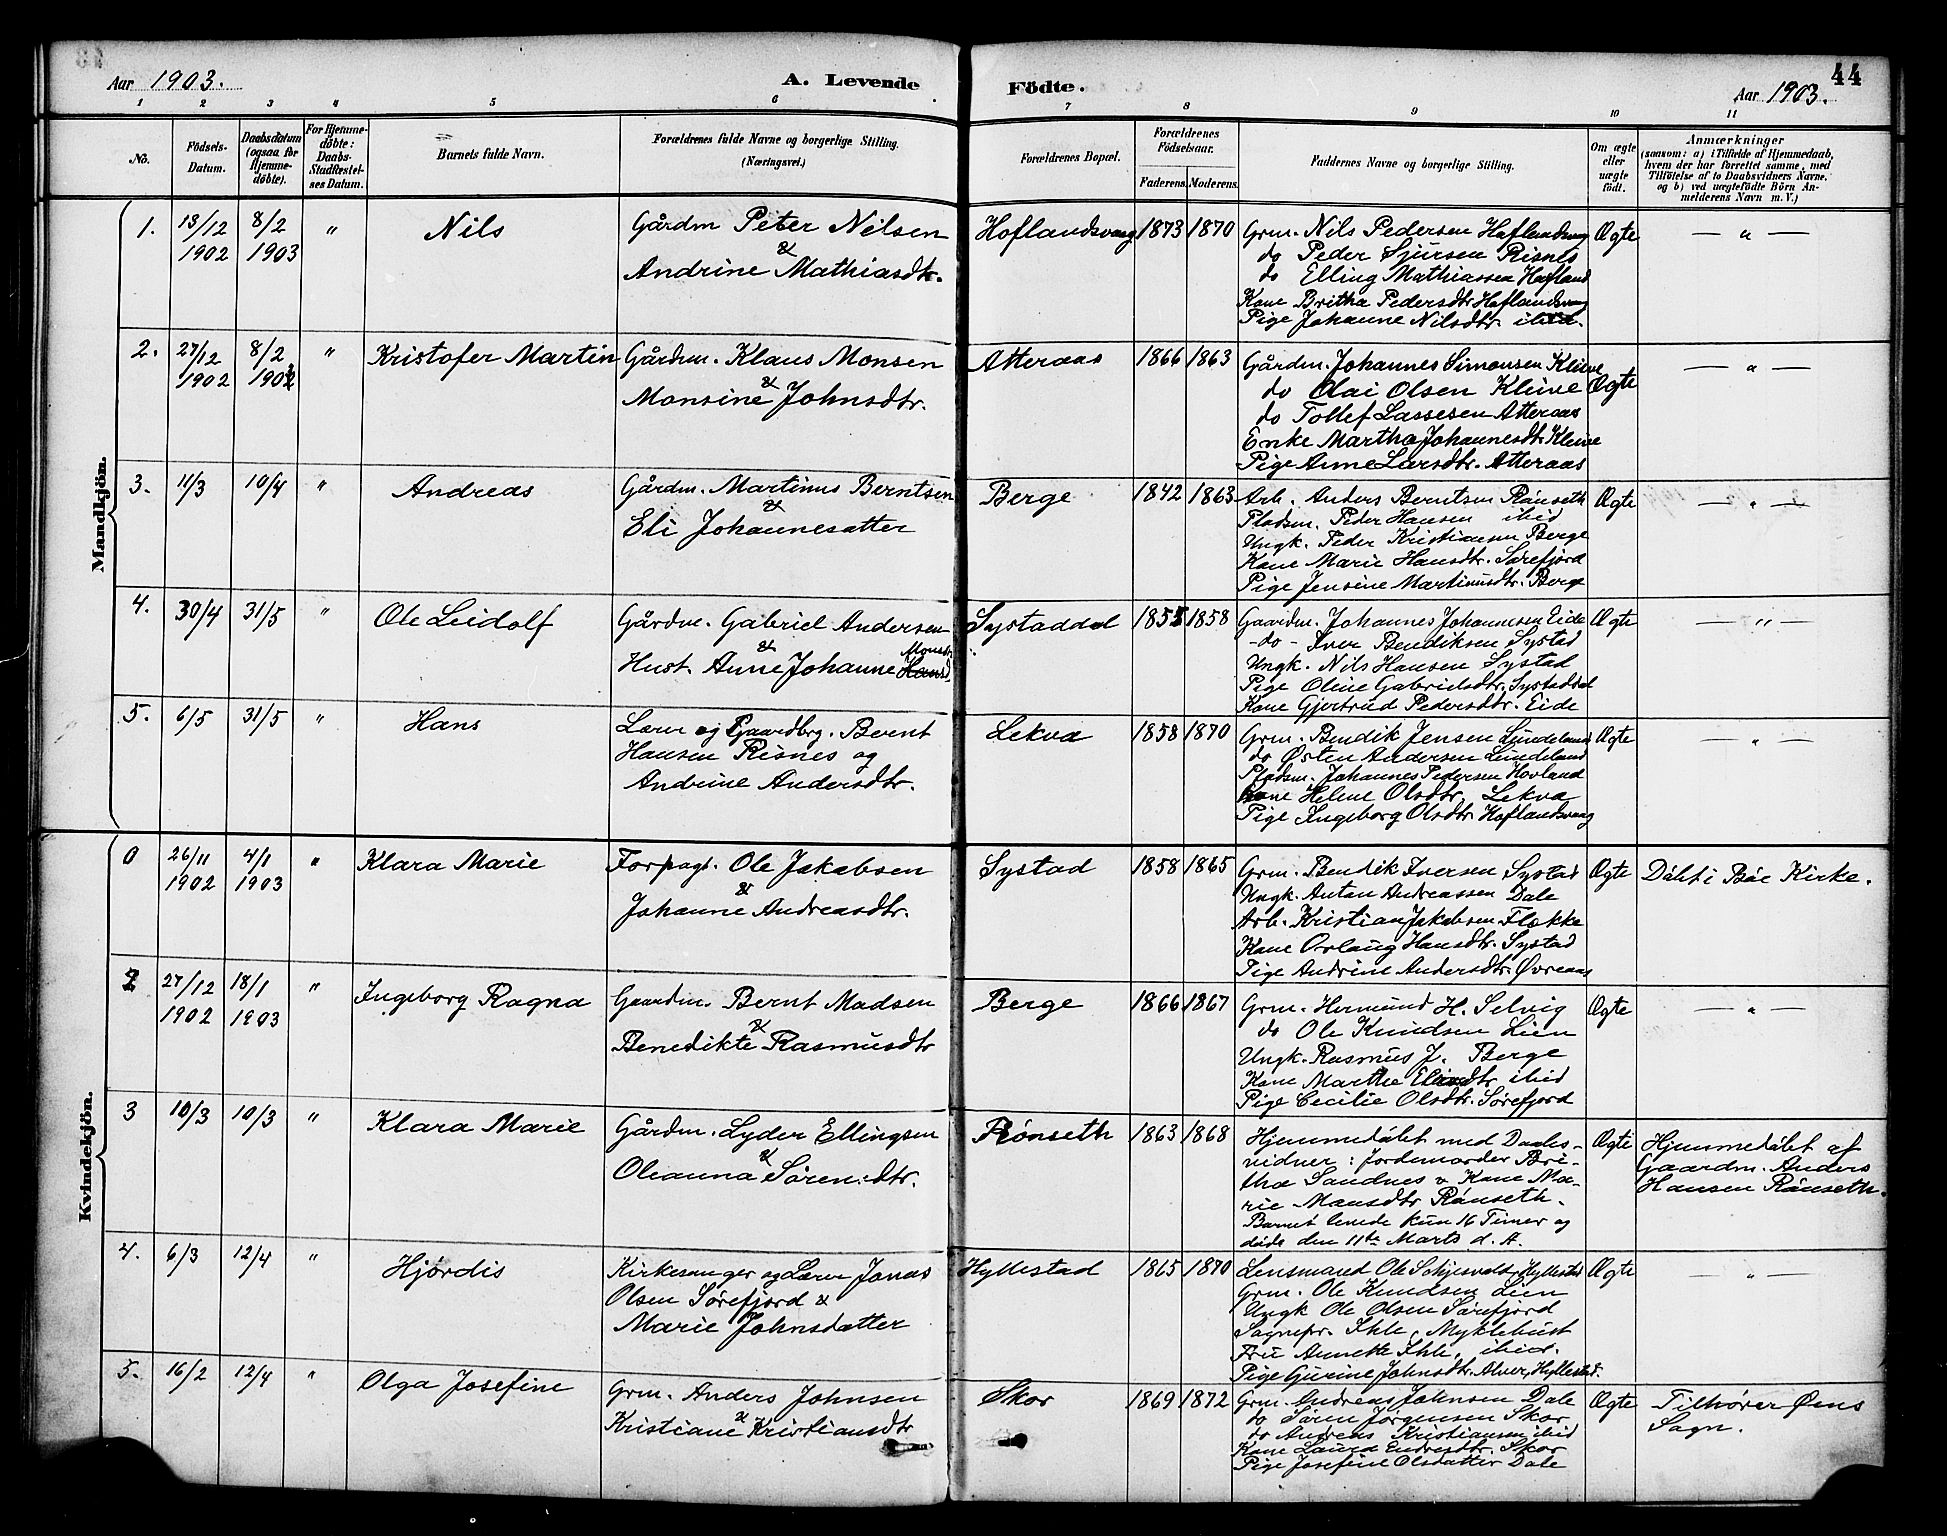 Aar 1903.
A. Levende Födte.
44
Aar 1903.
1 2 3 4 5 6 7 8 9 10 11
No.
Födsels-Datum.
Daabsdatum (ogsaa for Hjemme-döbte).
For Hjemme-döbte: Daabs-Stadfæstel-ses Datum.
Barnets fulde Navn.
Forældrenes fulde Navne og borgerlige Stilling.
(Næringsvei.)
Forældrenes Bopæl.
Forældrenes Födselsaar.
Faderens. Moderens.
Faddernes Navne og borgerlige Stilling.
Om ægte eller uægte födt.
Anmærkninger
(saasom: a) i Tilfælde af Hjemmedaab, hvem der har forrettet samme, med Tilföielse af to Daabsvidners Navne, og b) ved uægtefödte Börn An-melderens Navn m. V.)
Mandkjön.
1. 13/12 1902 8/2 1903 " Nils
Gårdm Peter Nilsen
&
Andrine Mathiasdtr.
Hoflandsvaag 1873 1870
Grm. Nils Pedersen Haflandsvag
do Peder Sjursen Risnes
do Elling Mathiassen Hafland
Kone Britha Pedersdtr Haflandsvaag
Pige Johanne Nilsdtr. ibid.
Ægte — " —
2. 27/12 1902 8/2 1903 " Kristofer Martin
Gårdm. Klaus Monsen
&
Monsine Johnsdtr.
Atteraas 1866 1863
Gårdm. Johannes Simonsen Kleive
do Olai Olsen Kleive
do Tollef Lassesen Atteraas
Enke Martha Johannesdtr Kleive
Pige Anne Larsdtr. Atteraas
Ægte — " —
3. 11/3 10/4 " Andreas
Gårdm. Martinus Berntsen
&
Eli Johannesatter
Berge 1842 1863
Arb. Anders Berntsen Rönseth
Pladsm. Peder Hansen ibid
Ungk. Peder Kristiansen Berge
Kone Marie Hansdtr. Sørefjord
Pige Jensine Martinusdtr. Berge
Ægte — " —
4. 30/4 31/5 " Ole Leidolf
Gårdm. Gabriel Andersen
&
Hust. Anne Johanne Hansd. Monsdtr
Systaddal 1855 1858
Gaardm. Johannes Johannesen Eide
- do - Iver Bendiksen Systad
Ungk. Nils Hansen Systad
Pige Oline Gabrielsdtr. Systaddal
Kone Gjertrud Pedersdtr. Eide
Ægte — " —
5. 6/5 31/5 " Hans
Lærer og Gaardbrg. Bernt
Hansen Risnes og
Andrine Andersdtr.
Lekva 1858 1870
Grm. Bendik Jensen Lundeland
do Østen Andersen Lundeland
Pladsm. Johannes Pedersen Hovland
Kone Helene Olsdtr. Lekva
Pige Ingeborg Olsdtr Haflandsvaag
Ægte — " —
Kvindekjön.
0 26/11 1902 4/1 1903 " Klara Marie
Forpagt. Ole Jakobsen
&
Johanne Andreasdtr.
Systad 1858 1865
Grm. Bendik Iversen Systad
Ungk. Anton Andreassen Dale
Arb. Kristian Jakobsen Flække
Kone Orlaug Hansdtr. Systad
Pige Andrine Andersdtr. Øvreaas
Ægte Döbt i Böe Kirke.
2 27/12 1902 18/1 1903 " Ingeborg Ragna
Gaardm. Bernt Madsen
&
Benedikte Rasmusdtr
Berge 1866 1867
Grm. Hermund H. Selvig
do Ole Knudsen Lien
Ungk. Rasmus J. Berge
Kone Marthe dtr ibid
Pige Cecilie Olsdtr. Sørefjord
Ægte — " —
3 10/3 10/3 " Klara Marie
Gårdm. Lyder Ellingsen
&
Oleanna Søren:dtr.
Rönseth 1863 1868
Hjemmedöbt med Daabs-
vidner: Jordemoder Bri-
tha Sandnes & Kone Ma-
rie Monsdtr Rönseth.
Barnet levede kun 16 Timer og
döde den 11te Marts d. A.
Ægte
Hjemmedöbt af
Gaardm. Anders
Hansen Rönseth.
4. 6/3 12/4 " Hjørdis
Kirkesanger og Lærer Jonas
Olsen Sørefjord &
Marie Johnsdatter
Hyllestad 1865 1870
Lensmand Ole Schjesvold, Hyllestad
Grm. Ole Knudsen Lien
Ungk Ole Olsen Sørefjord
Sognepr. Ihle, Myklebust
Fru Annette Ihle, ibid.
Pige Gurine Johnsdtr. Alver, Hyllestad.
Ægte — " —
5. 16/2 12/4 " Olga Josefine
Grm. Anders Johnsen
&
Kristiane Kristiansdtr
Skor 1869 1872
Grm. Andreas Johnsen Dale
do Sören Jörgensen Skor
do Andreas Kristiansen ibid
Kone Laura Endresdtr. Skor
Pige Josefine Olsdatter Dale
Ægte
Tilhører Øens
Sogn.